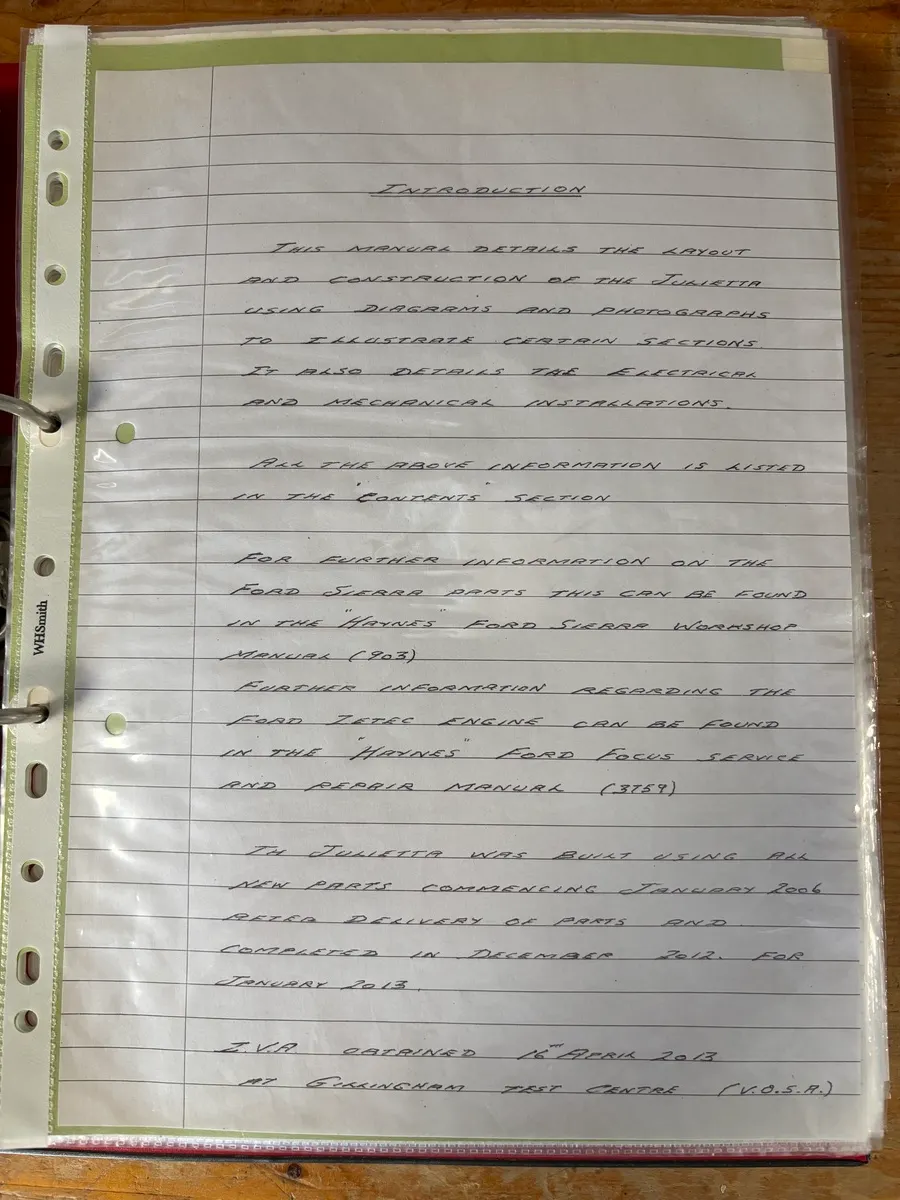 INTRODUCTION
THIS MANUAL DETAILS THE LAYOUT
AND CONSTRUCTION OF THE JULIETTA
USING DIAGRAMS AND PHOTOGRAPHS
TO ILLUSTRATE CERTAIN SECTIONS.
IT ALSO DETAILS THE ELECTRICAL
AND MECHANICAL INSTALLATIONS.
ALL THE ABOVE INFORMATION IS LISTED
IN THE "CONTENTS" SECTION
FOR FURTHER INFORMATION ON THE
FORD SIERRA PARTS THIS CAN BE FOUND
IN THE "HAYNES" FORD SIERRA WORKSHOP
MANUAL (903)
FURTHER INFORMATION REGARDING THE
FORD ZETEC ENGINE CAN BE FOUND
IN THE "HAYNES" FORD FOCUS SERVICE
AND REPAIR MANUAL (3759)
TH JULIETTA WAS BUILT USING ALL
NEW PARTS COMMENCING JANUARY 2006
AFTER DELIVERY OF PARTS AND
COMPLETED IN DECEMBER 2012. FOR
JANUARY 2013.
I.V.A. OBTAINED 16TH APRIL 2013
AT GILLINGHAM TEST CENTRE (V.O.S.A.)
WHSmith